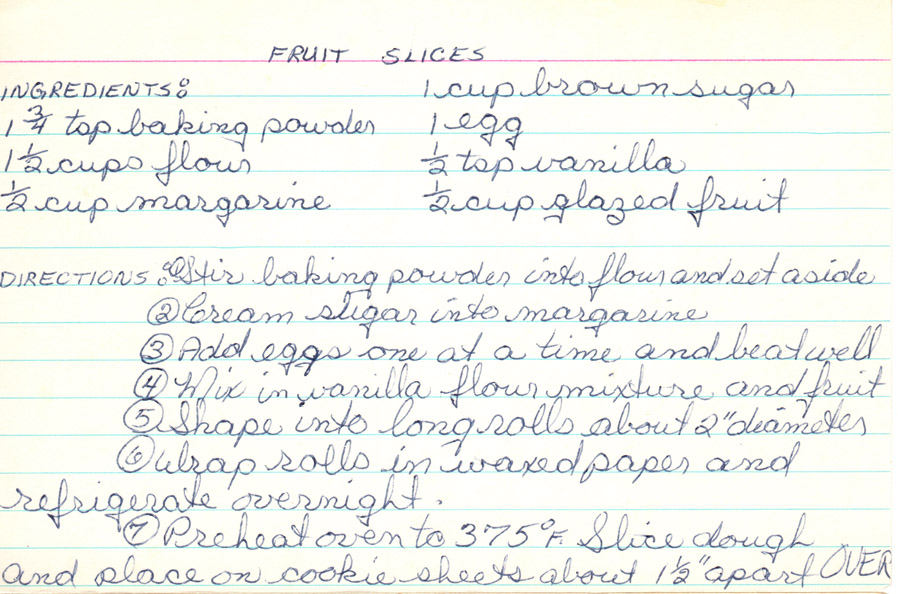 FRUIT SLICES
INGREDIENTS:
1 cup brown sugar
1 3/4 tsp baking powder
1 egg
1 1/2 cups flour
1/2 tsp vanilla
1/2 cup margarine
1/2 cup glazed fruit
DIRECTIONS: ① Stir baking powder into flour and set aside
② Cream sugar into margarine
③ Add eggs one at a time and beat well
④ Mix in vanilla flour mixture and fruit
⑤ Shape into long rolls about 2" diameter
⑥ Wrap rolls in waxed paper and
refrigerate overnight.
⑦ Preheat oven to 375°F. Slice dough
and place on cookie sheets about 1 1/2" apart OVER